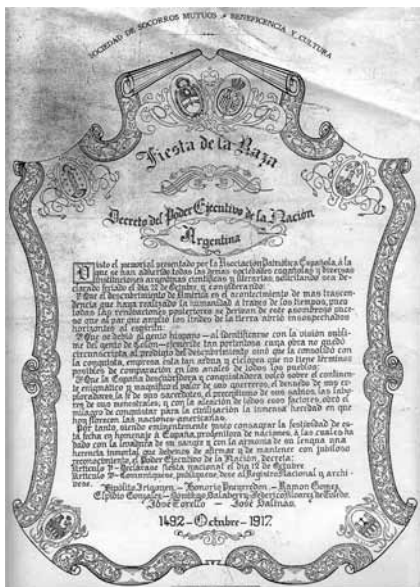 SOCIEDAD DE SOCORROS MUTUOS - BENEFICENCIA Y CULTURA
Fiesta de la Raza
Decreto del Poder Ejecutivo de la Nación
Argentina
Visto el memorial presentado por la Asociación Patriótica Española, á la
que se han adherido todas las demás sociedades españolas y diversas
instituciones argentinas científicas y literarias, solicitando sea de-
clarado feriado el día 12 de Octubre, y considerando:
1º Que el descubrimiento de América es el acontecimiento de mas trascen-
dencia que haya realizado la humanidad á través de los tiempos, pues
todas las renovaciones posteriores se derivan de este asombroso suce-
so que al par que amplió los lindes de la tierra abrió insospechados
horizontes al espíritu:
2º Que se debió al genio hispano—al identificarse con la visión subli-
me del genio de Colón—efeméride tan portentosa cuya obra no quedó
circunscripta al prodigio del descubrimiento sinó que la consolidó con
la conquista, empresa ésta tan ardua y ciclópea que no tiene términos
posibles de comparación en los anales de todos los pueblos:
3º Que la España descubridora y conquistadora volcó sobre el continen-
te enigmático y magnífico el valor de sus guerreros, el denuedo de sus ex-
ploradores, la fé de sus sacerdotes, el preceptismo de sus sabios, las labo-
res de sus menestrales, y con la aleación de todos esos factores, obró el
milagro de conquistar para la civilización la inmensa heredad en que
hoy florecen las naciones americanas.
Por tanto, siendo eminentemente justo consagrar la festividad de es-
ta fecha en homenaje á España, progenitora de naciones, á las cuales ha
dado con la levadura de su sangre y con la armonía de su lengua una
herencia inmortal que debemos de afirmar y de mantener con jubiloso
reconocimiento, el Poder Ejecutivo de la Nación, decreta:
Artículo 1º — Declárase fiesta nacional el día 12 de Octubre
Artículo 2º — Comuníquese, publíquese, dése al Registro Nacional y archí-
vese.
Hipólito Irigoyen — Honorio Pueyrredon — Ramon Gomez
Elpidio Gonzalez — Domingo Salaberry — Federico Alvarez de Toledo
José Torello — José Salinas
1492-Octubre-1917